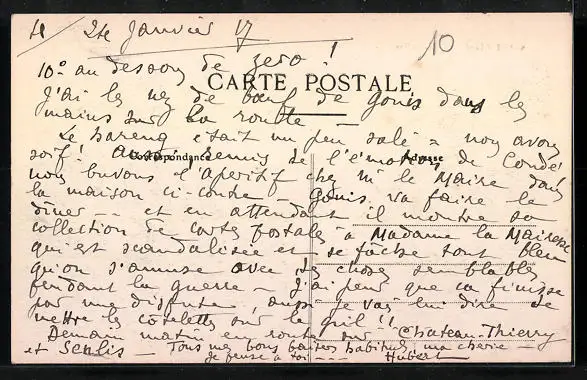 4 / 24 Janvier 17
10
10° au dessous de zero !
CARTE POSTALE
J'ai le nez de bœuf de Gouis dans les
mains sur la route —
Le hareng était un peu salé = nous avons
soif ! Aussi remis de l'émotion de Condé
Correspondance
Adresse
nous buvons l'apéritif chez M. le Maire dans
la maison ci-contre — Gouis va faire le
dîner — et en attendant il montre sa
collection de cartes postales à Madame la Mairesse
qui est scandalisée et se fâche tout bleu
qu'on s'amuse avec des choses semblables
pendant la guerre — J'ai peur que ça finisse
par une dispute, aussi je vais lui dire de
mettre les cotelettes sur le gril !!
Demain matin en route sur Chateau-Thierry
et Senlis — Tous mes bons baisers habituels, ma cherie —
je pense à toi — Hubert